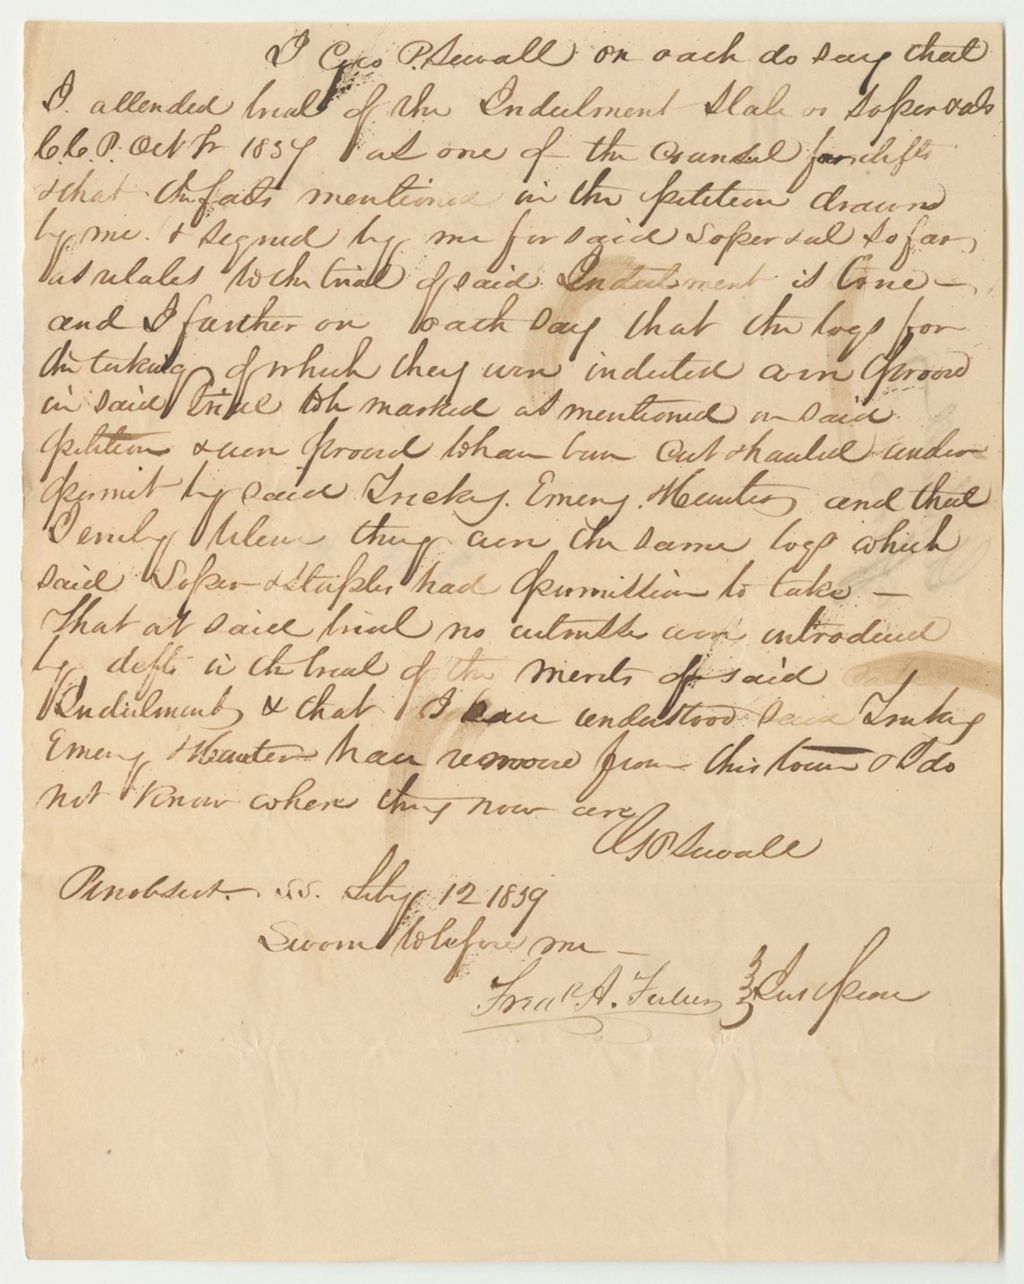 I Geo P. Sewall on oath do say that
I attended trial of the Indictment State vs Soper & als
C.C.P. Oct Tr 1837 as one of the Counsel for defts
& that the facts mentioned in the petition drawn
by me & signed by me for said Soper & al so far
as relates to the trial of said Indictment is true —
and I further on oath say that the logs for
the taking of which they were indicted were proved
in said trial to be marked as mentioned in said
petition & were proved to have been cut & hauled under
permit by said Trickey, Emery & Hunter and that
I verily believe they were the same logs which
said Soper & Staples had permission to take —
That at said trial no witnesses were introduced
by defts in the trial of the merits of said
Indictment, & that I have understood said Trickey
Emery & Hunter have removed from this town & I do
not know where they now are
G P Sewall
Penobscot. SS. Feby 12 1839
Sworn to before me —
Fredk A. Fuller } Jus Peace